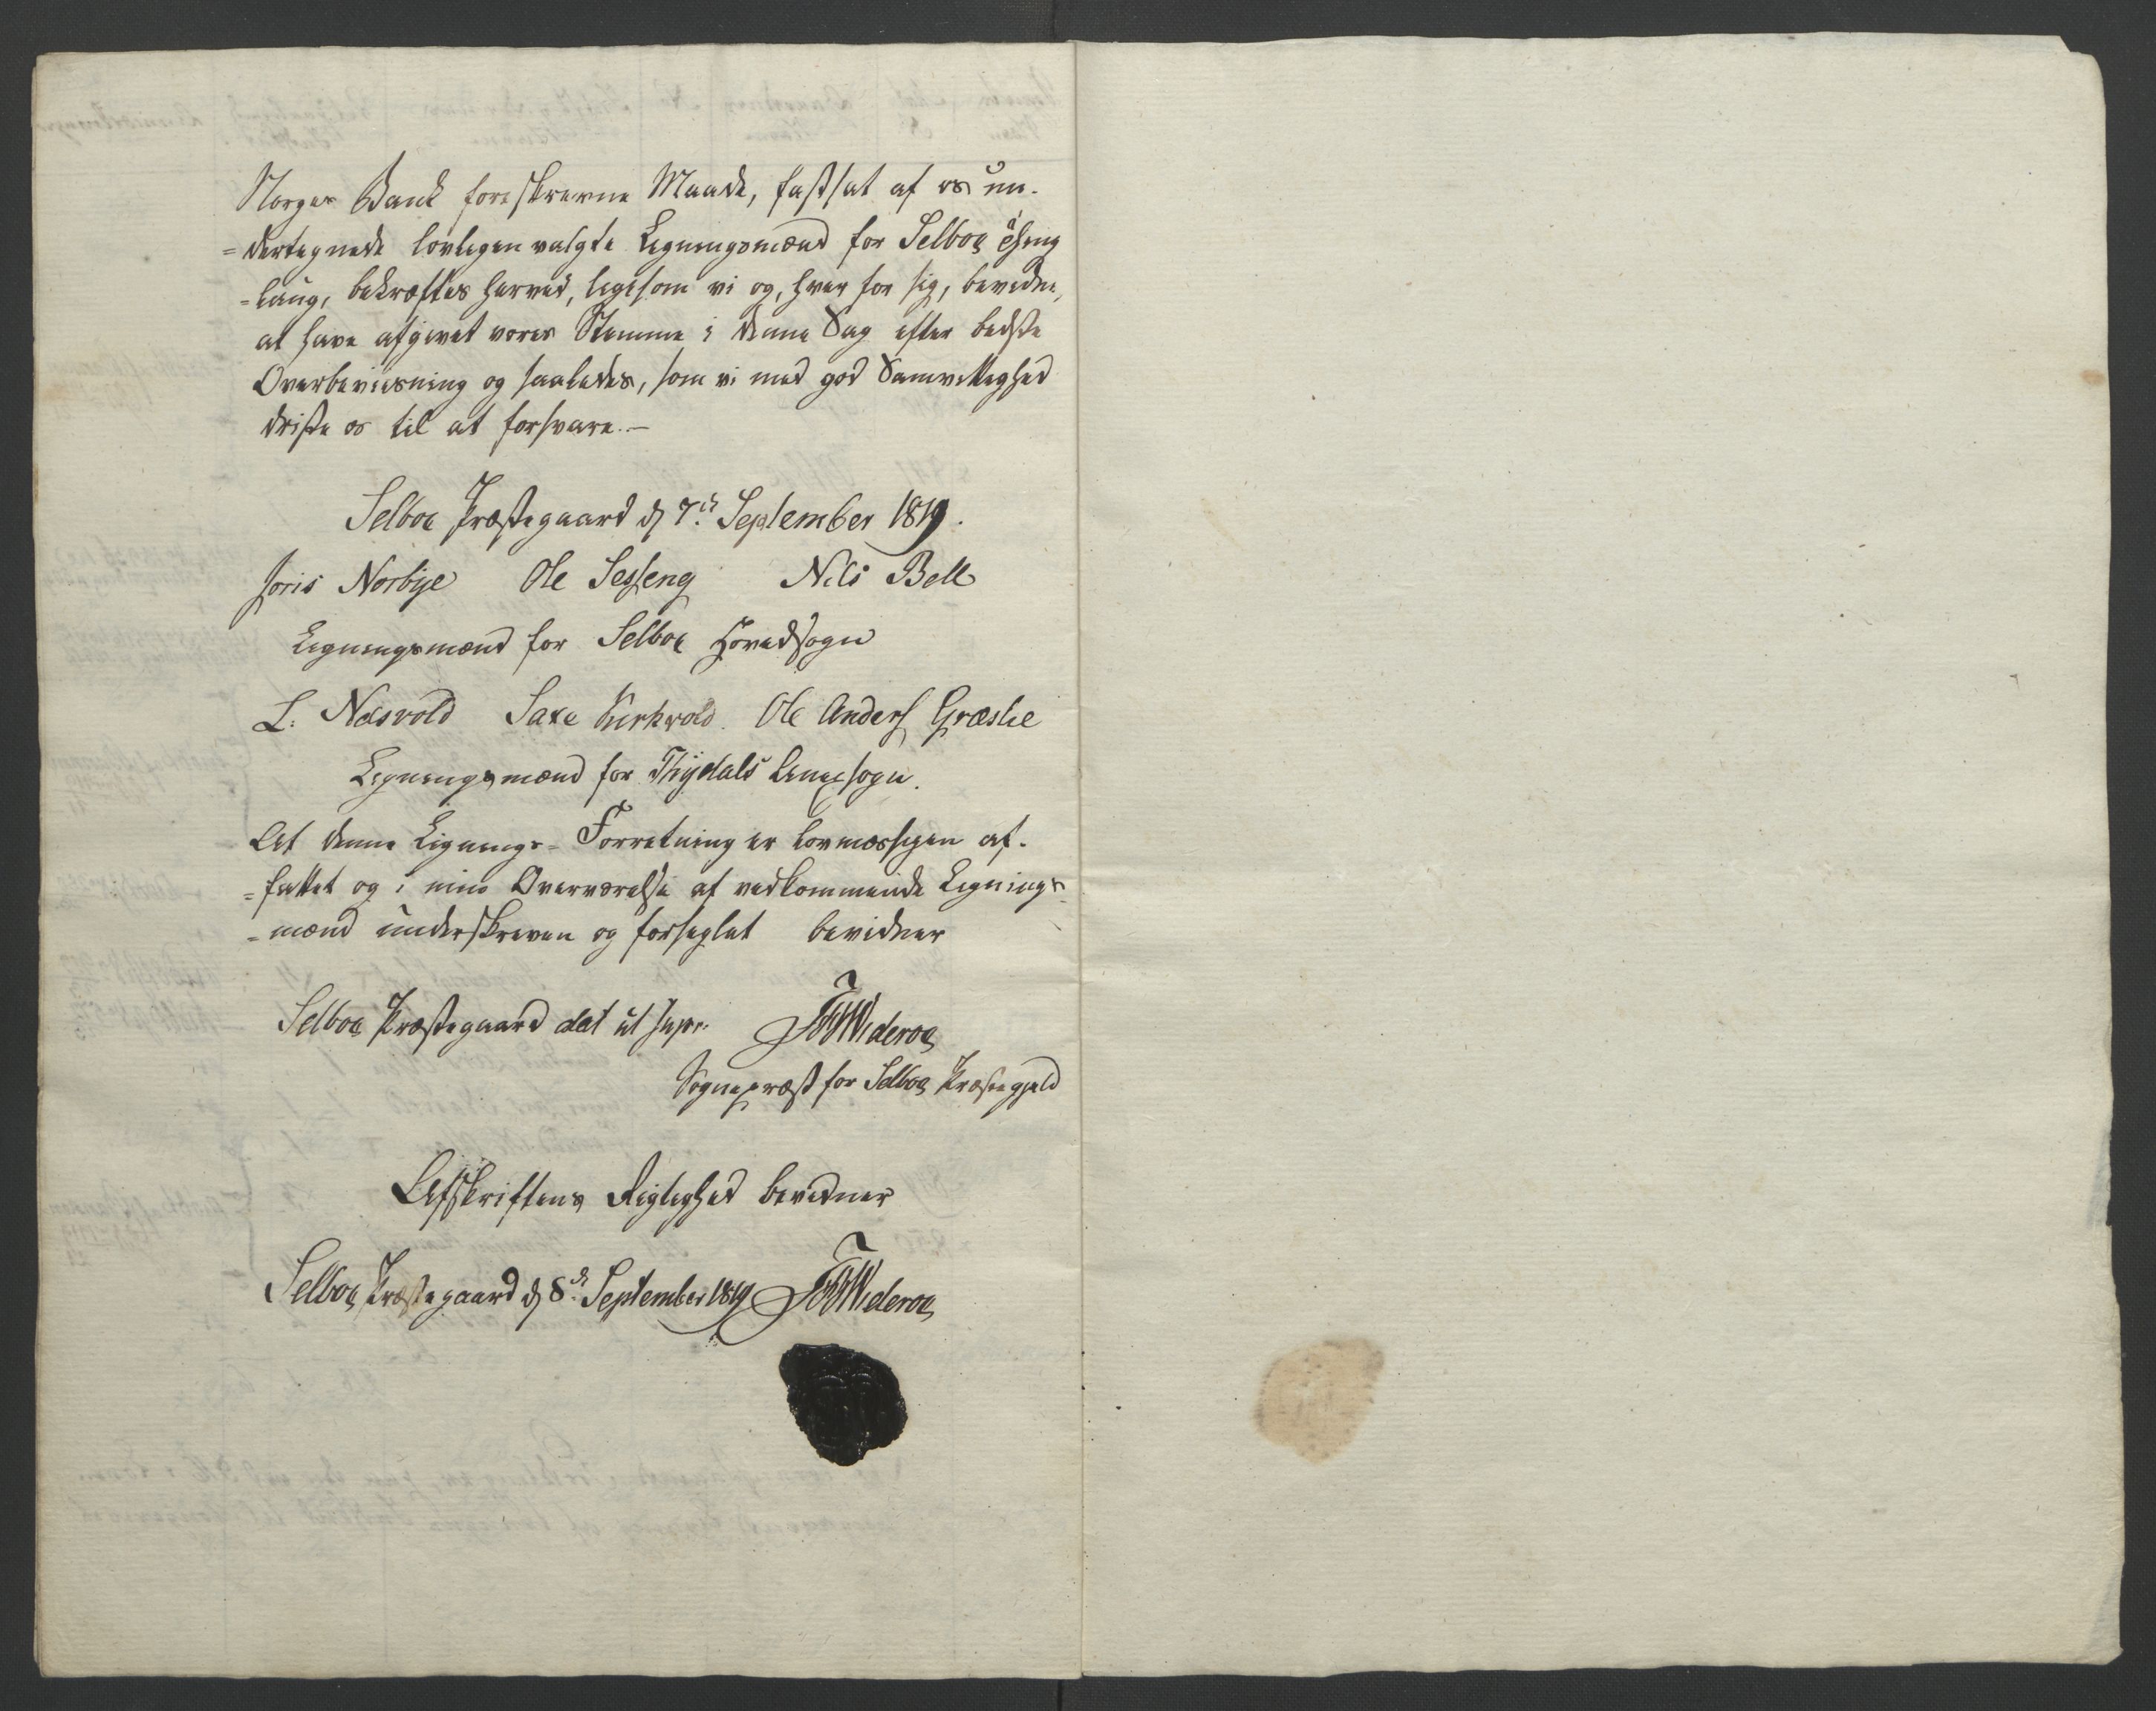 Norges Bank foreskrevne Maade, fastsat af os un-
=dertegnede lovligen valgte Ligningsmænd for Selboe Thing
=laug, bekræftes herved, ligesom vi og, hver for sig, bevidne,
at have afgivet vores Stemme i denne Sag efter bedste
Overbeviisning og saaledes, som vi med god Samvittighed
driste os til at forsvare.—
Selboe Præstegaard d 7de September 1819.
Joris Norbye Ole Sesseng Nils Bell
Ligningsmænd for Selboe Hovedsogn
L. Næsvold Saxe Kirkvold. Ole Anders Græslie
Ligningsmænd for Thydals Annexsogn.
At denne Lignings-Forretning er lovmæssigen af-
=fattet og i min Overværelse af vedkommende Lignings-
=mænd underskreven og forseglet bevidner
Selboe Præstegaard dat ut supr. Wideroe
Sognepræst for Selboe Præstegjeld
Afskriftens Rigtighed bevidner
Selboe Præstegaard d 8de September 1819 Wideroe